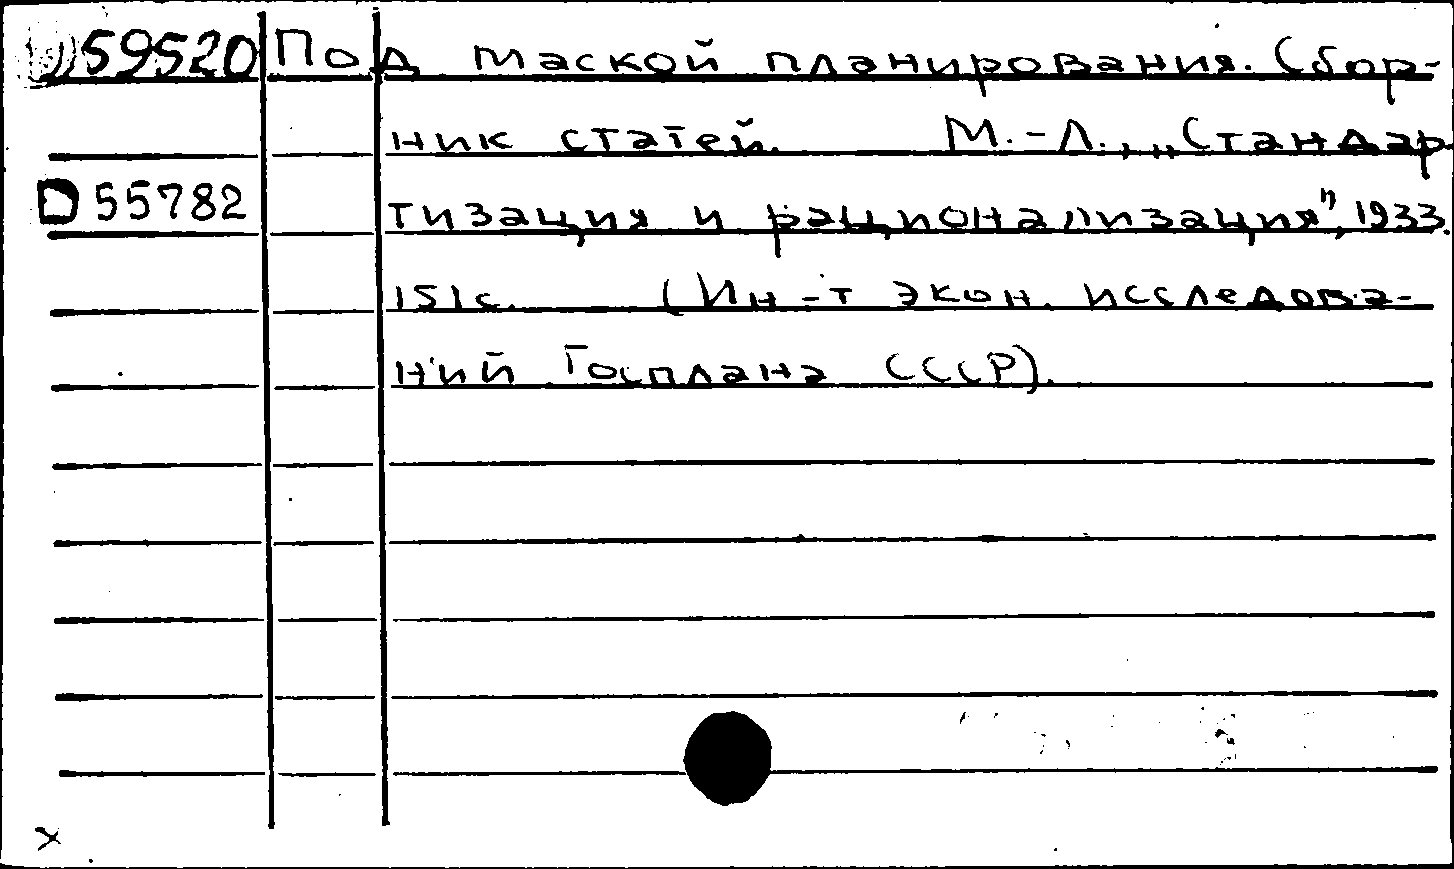 59520 Под маской планирования. Сбор-
ник статей. М.-Л., „Стандар
D 55782 тизация и рационализация", 1933.
151 с. (Ин-т экон. исследова-
ний Госплана СССР).